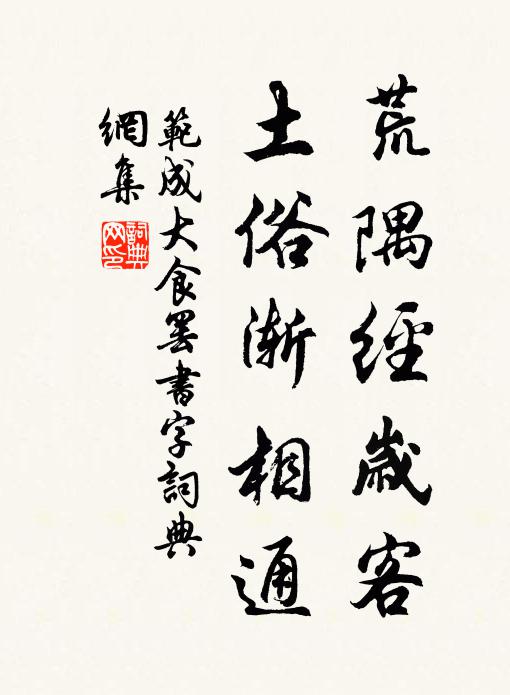 荒隅經歲客
土俗漸相通
範成大食罢書字詞典
網集
詞典
网印